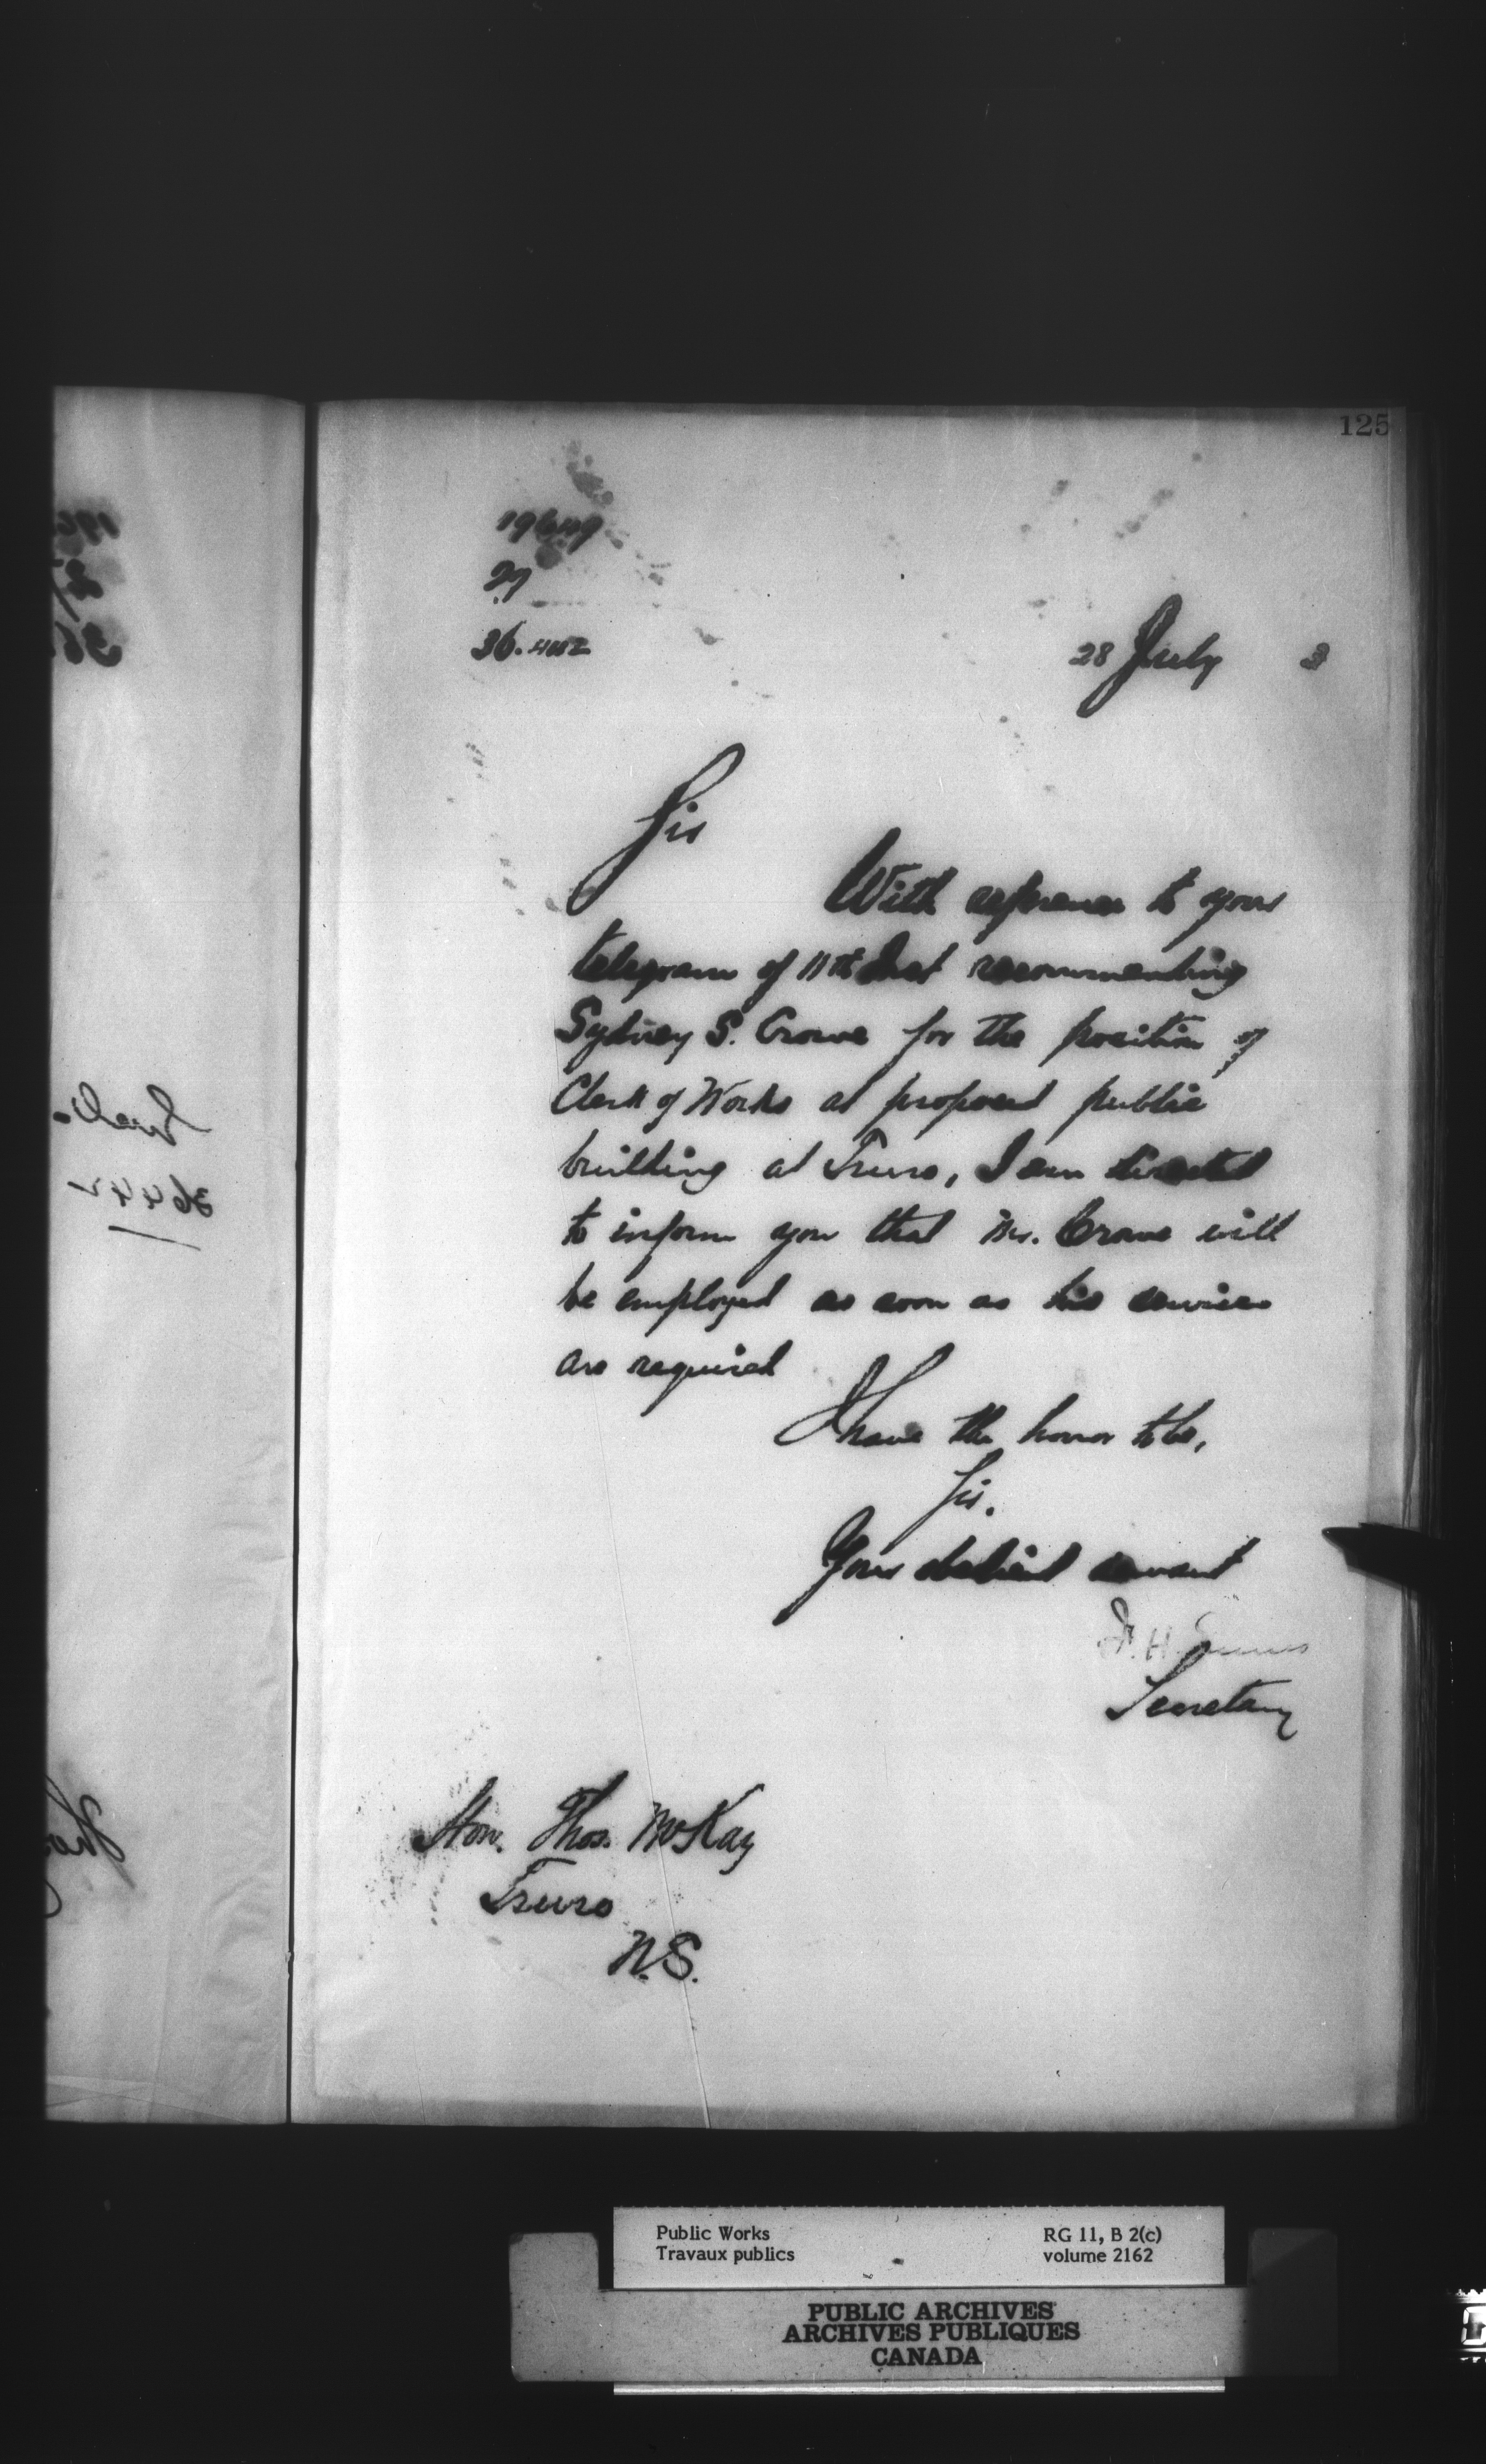 125
19649
27
36.442
28 July 3
Sir
With reference to your
telegram of 11th Inst recommending
Sydney S. Crowe for the position of
Clerk of Works at proposed public
building at Truro, I am directed
to inform you that Mr. Crowe will
be employed as soon as his services
are required
I have the honor to be,
Sir.
Your obedient servant
F. H. Ennis
Secretary
Hon. Thos. McKay
Truro
N.S.
Public Works
Travaux publics
RG 11, B 2(c)
volume 2162
PUBLIC ARCHIVES
ARCHIVES PUBLIQUES
CANADA